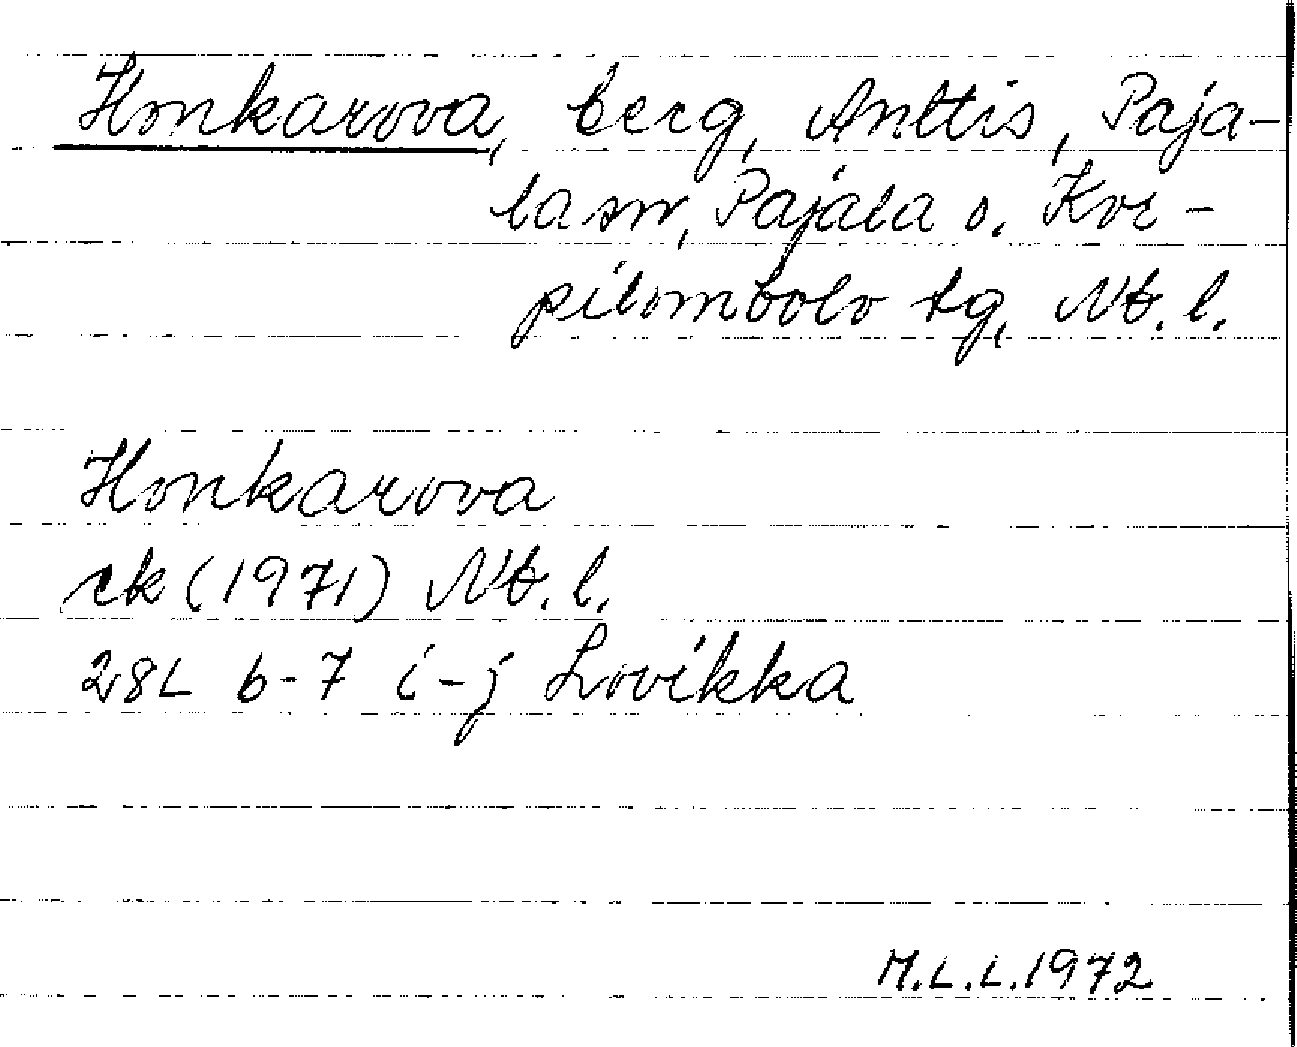 Honkarova, berg, Anttis, Paja-
la sn, Pajala o. Kor-
pilombolo tg, Nb. l.
Honkarova
ek (1971) Nb. l.
28L 6-7 i-j Lovikka
M.L.L. 1972